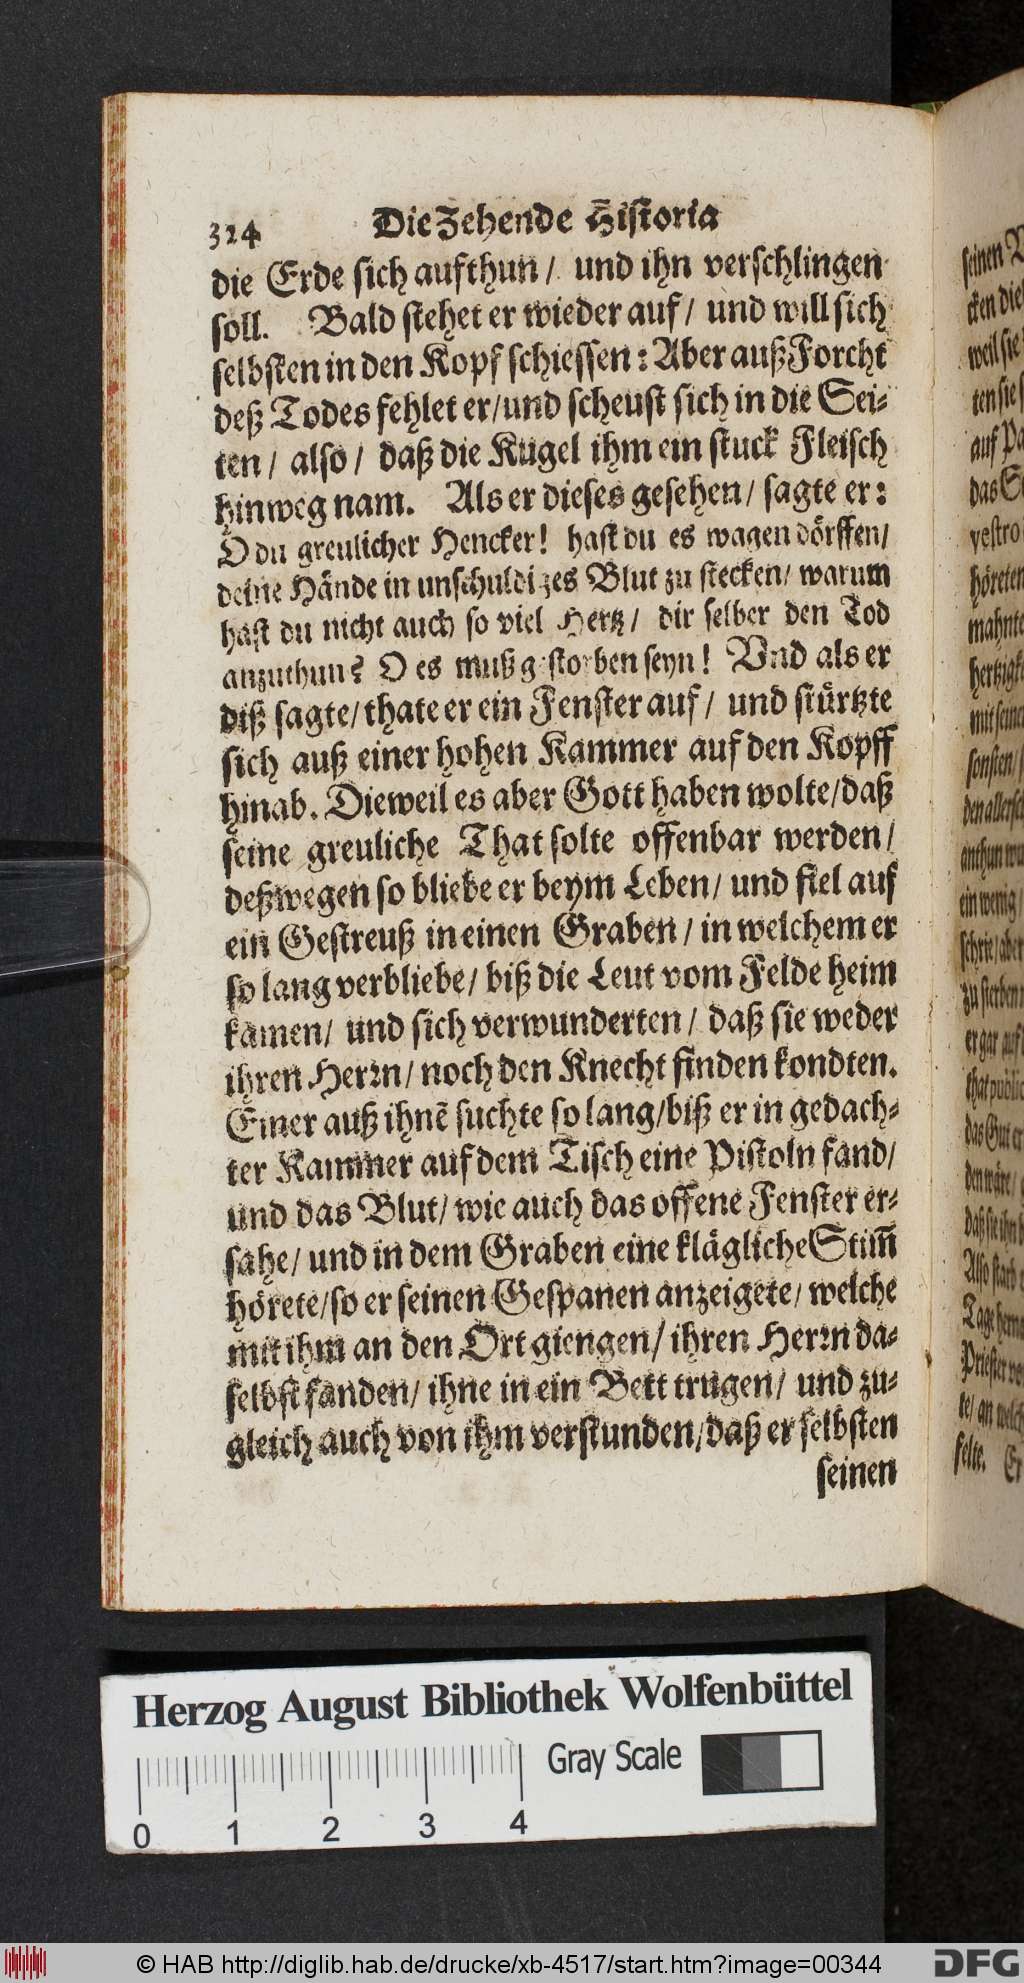 324 Die Zehende Historia
die Erde sich aufthun / und ihn verschlingen
soll. Bald stehet er wieder auf / und will sich
selbsten in den Kopf schiessen: Aber auß Forcht
deß Todes fehlet er / und scheust sich in die Sei-
ten / also / daß die Kugel ihm ein stuck Fleisch
hinweg nam. Als er dieses gesehen / sagte er:
O du greulicher Hencker! hast du es wagen dörffen /
deine Hände in unschuldiges Blut zu stecken / warum
hast du nicht auch so viel Hertz / dir selber den Tod
anzuthun? O es muß gestorben seyn! Vnd als er
diß sagte / thate er ein Fenster auf / und stürtzte
sich auß einer hohen Kammer auf den Kopff
hinab. Dieweil es aber Gott haben wolte / daß
seine greuliche That solte offenbar werden /
deßwegen so bliebe er beym Leben / und fiel auf
ein Gestreuß in einen Graben / in welchem er
so lang verbliebe / biß die Leut vom Felde heim
kamen / und sich verwunderten / daß sie weder
ihren Herrn / noch den Knecht finden kondten.
Einer auß ihnẽ suchte so lang / biß er in gedach-
ter Kammer auf dem Tisch eine Pistoln fand /
und das Blut / wie auch das offene Fenster er-
sahe / und in dem Graben eine klägliche Stim̃
hörete / so er seinen Gespanen anzeigete / welche
mit ihm an den Ort giengen / ihren Herrn da-
selbst fanden / ihne in ein Bett trugen / und zu-
gleich auch von ihm verstunden / daß er selbsten
seinen
seinen
cken die
weil sie
ten sie
auf
das
yestro
höreten
mahnte
hertzigk
mit seine
sonsten /
den allersch
anthun
ein wenig
schrie / aber
zu sterben
er gar auf
that public
das Gut er
den wäre /
daß sie ihn
Also starb
Tage herna
Priester
te / an welch
felte. Er
Herzog August Bibliothek Wolfenbüttel
Gray Scale
0 1 2 3 4
© HAB http://diglib.hab.de/drucke/xb-4517/start.htm?image=00344
DFG